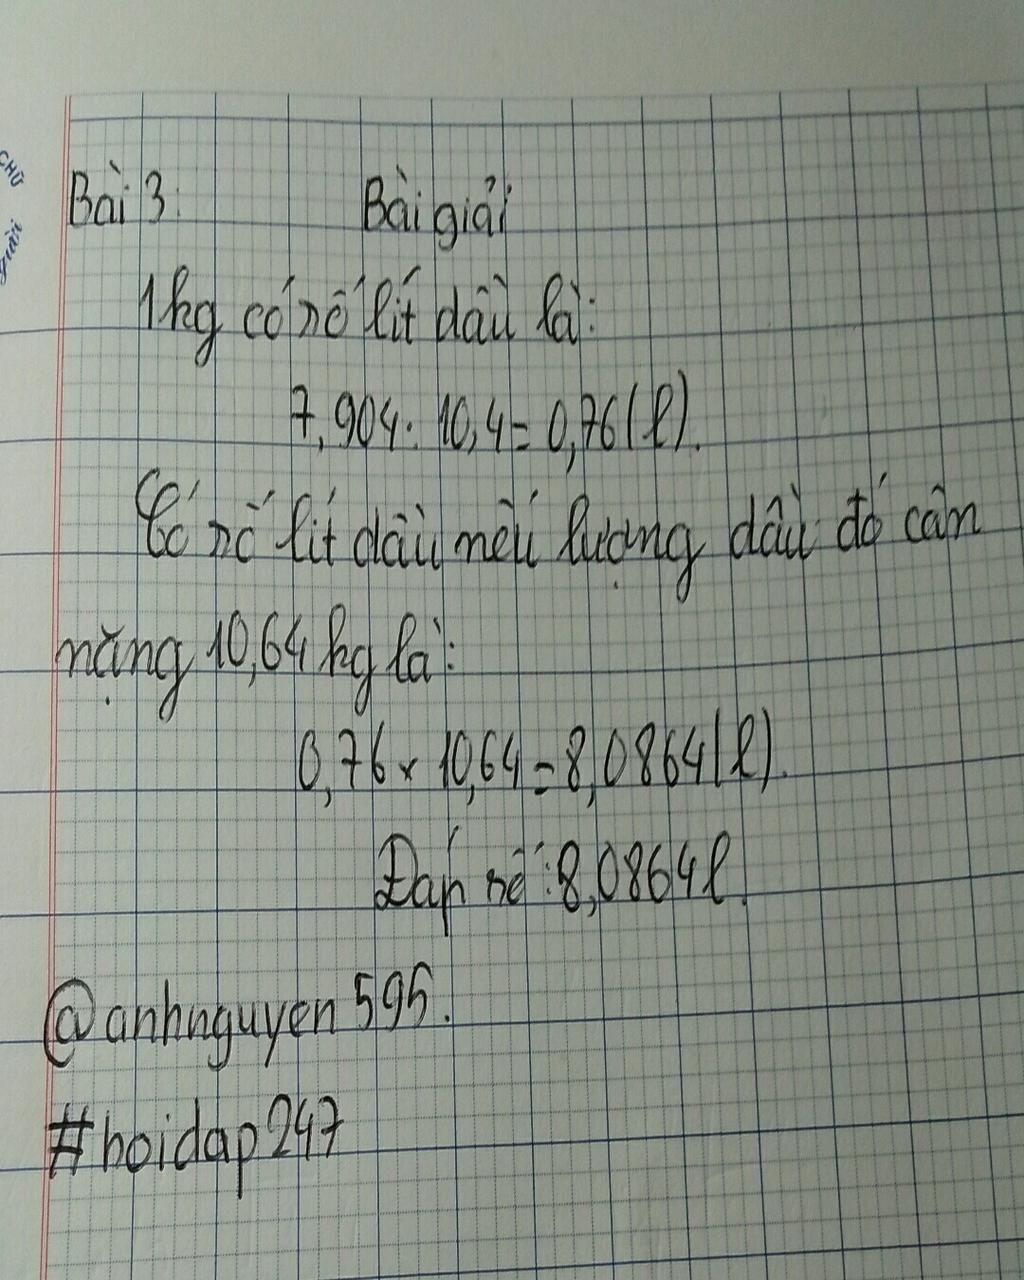 CHỮ
Bài 3: Bài giải
1kg có số lít dầu là:
7,904 : 10,4 = 0,76 (l).
Có số lít dầu nếu lượng dầu đó cân
nặng 10,64 kg là:
0,76 x 10,64 = 8,0864 (l).
Đáp số : 8,0864 l.
@anhnguyen 595.
#hoidap247